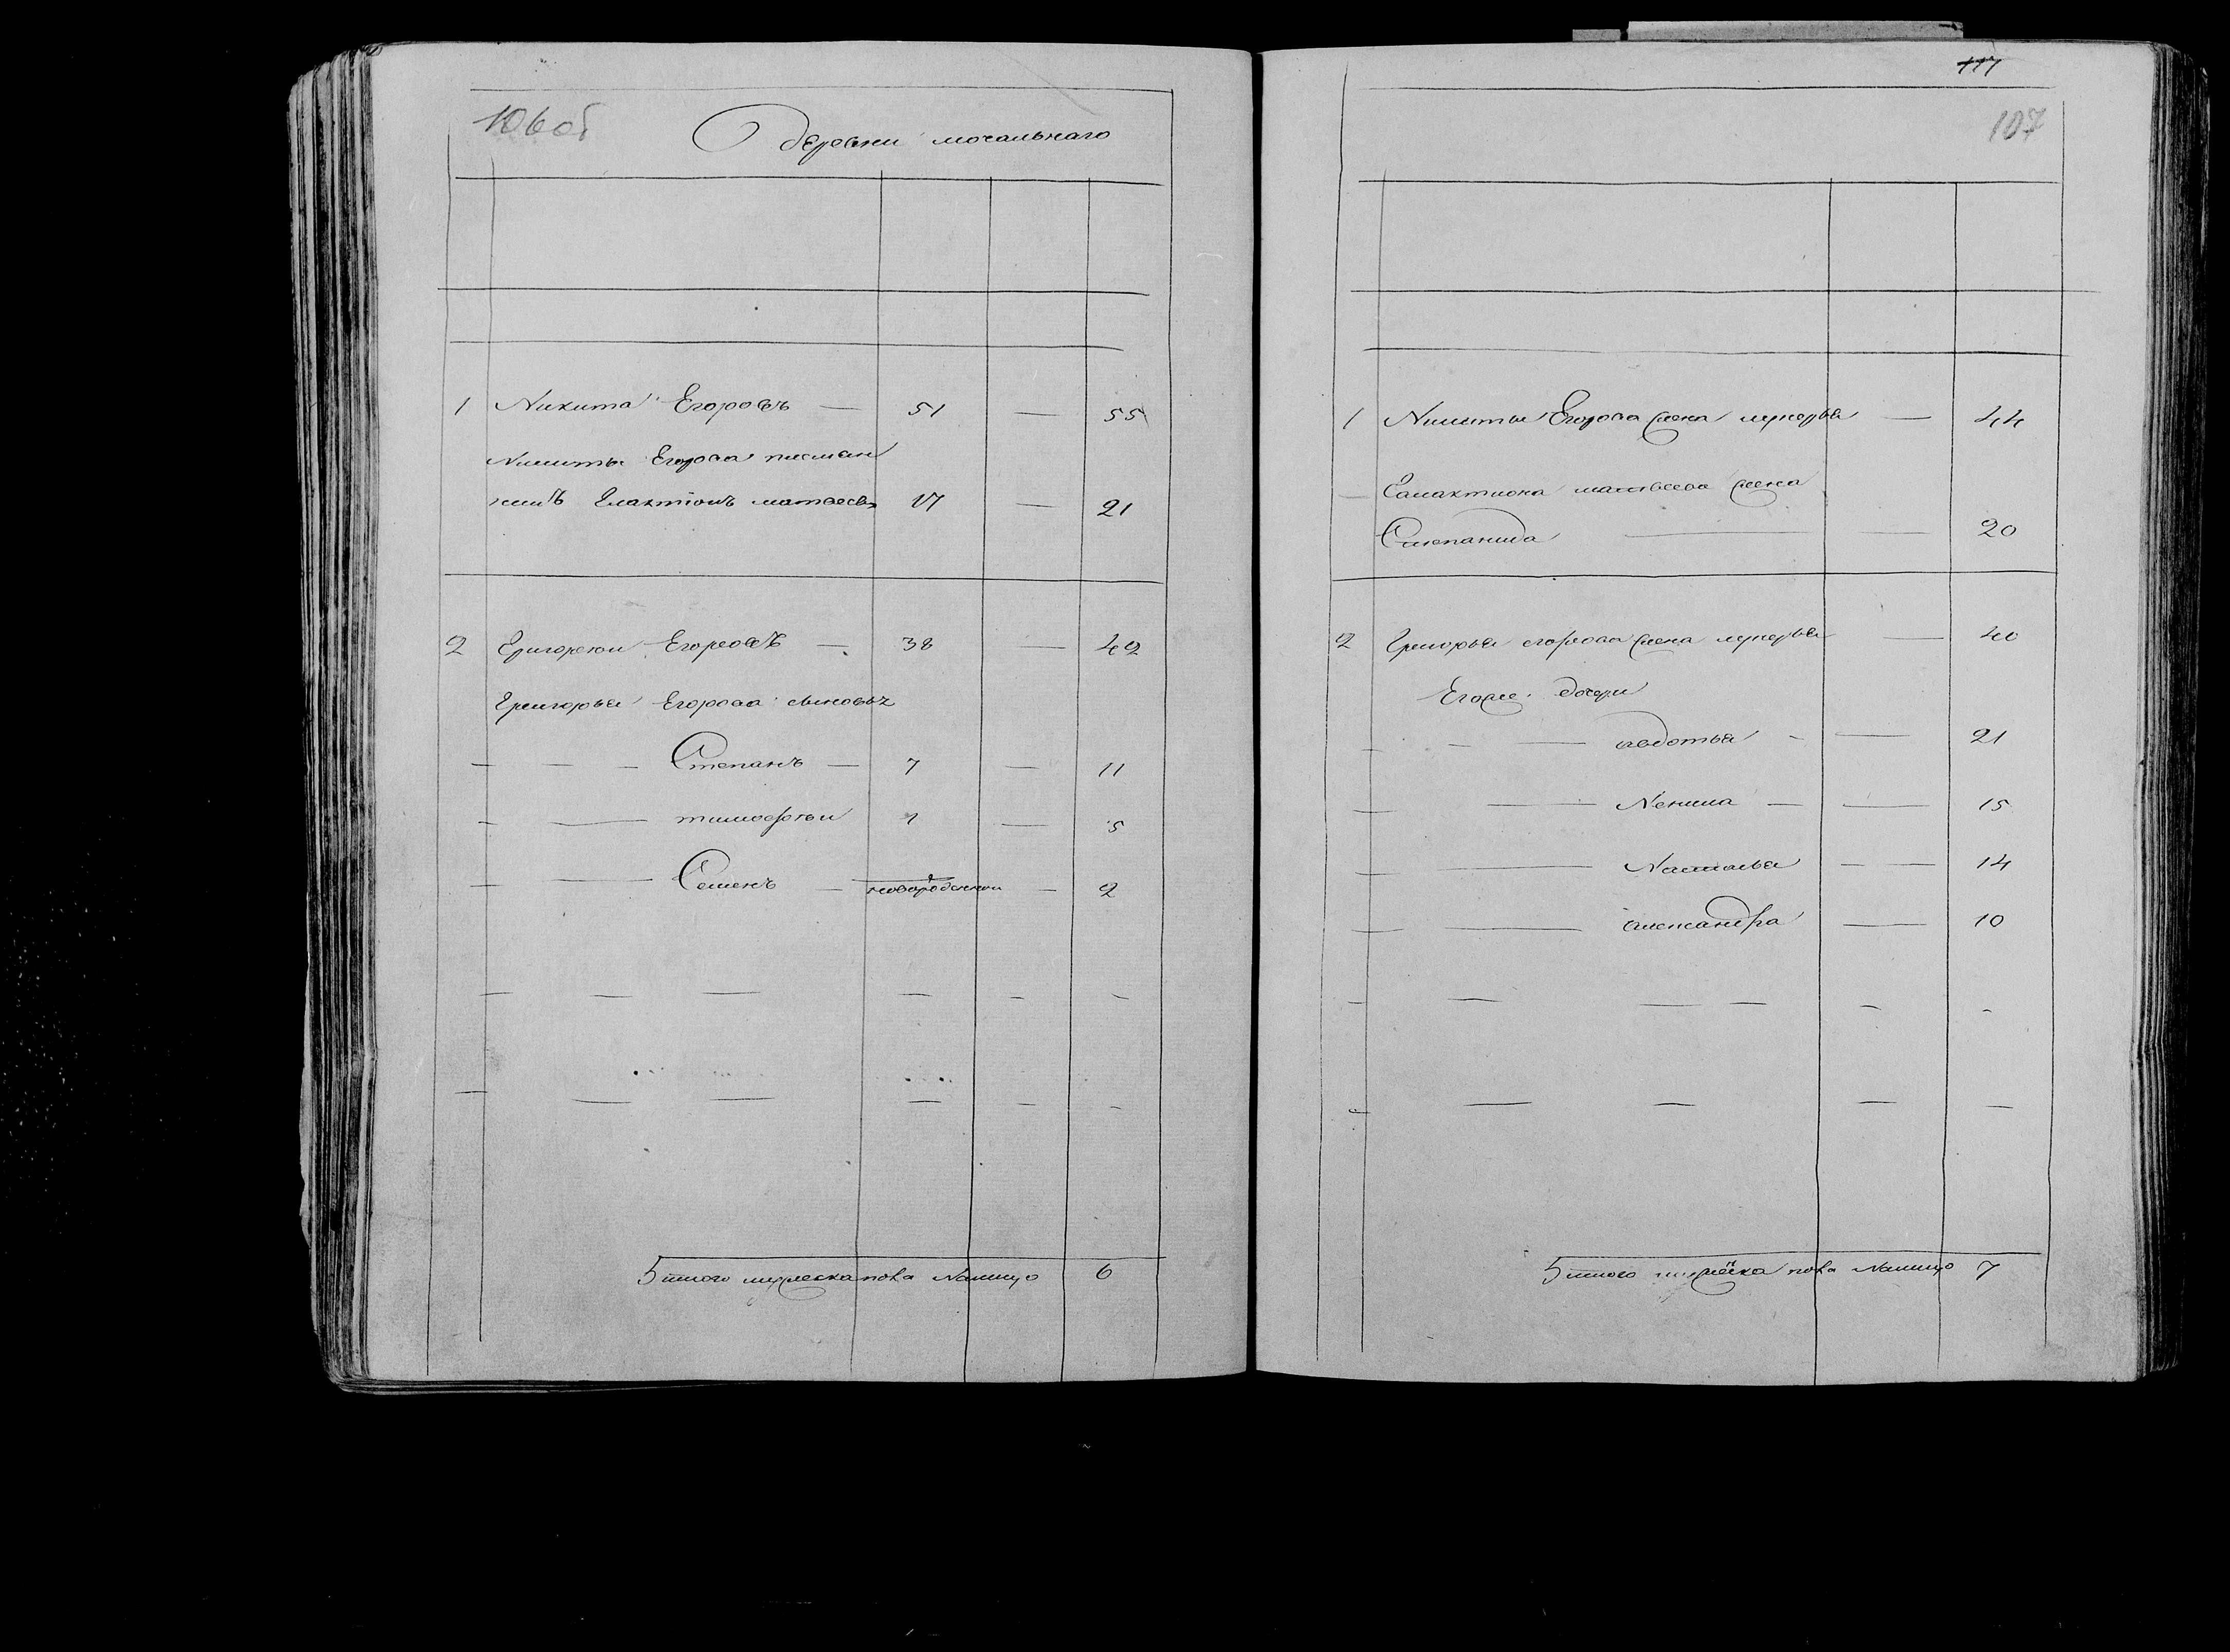 106 об
деревни мочальнаго
1 Никита Егоровъ — 51 — 55
Никиты Егорова племян
никъ Елактіонъ матвеевъ 17 — 21
2 Григореи Егоровъ — 38 — 42
Григорья Егорова сыновья
— — — Степанъ — 7 — 11
— — тимофеи 1 — 5
— — Семенъ — новорожденнои — 2
— — — — — —
— — — — — —
Итого мужеска пола Налицо 6
117
107
1 Никиты Егорова жена лукерья — 44
— Галактиона матвеева жена
Степанида — — 20
2 Григорья егорова жена лукерья — 40
Егоже дочери
— — — авдотья — — 21
— — Ненила — — 15
— — Наталья — — 14
— — александра — 10
— — — — — —
— — — — —
Итого женска пола Налицо 7